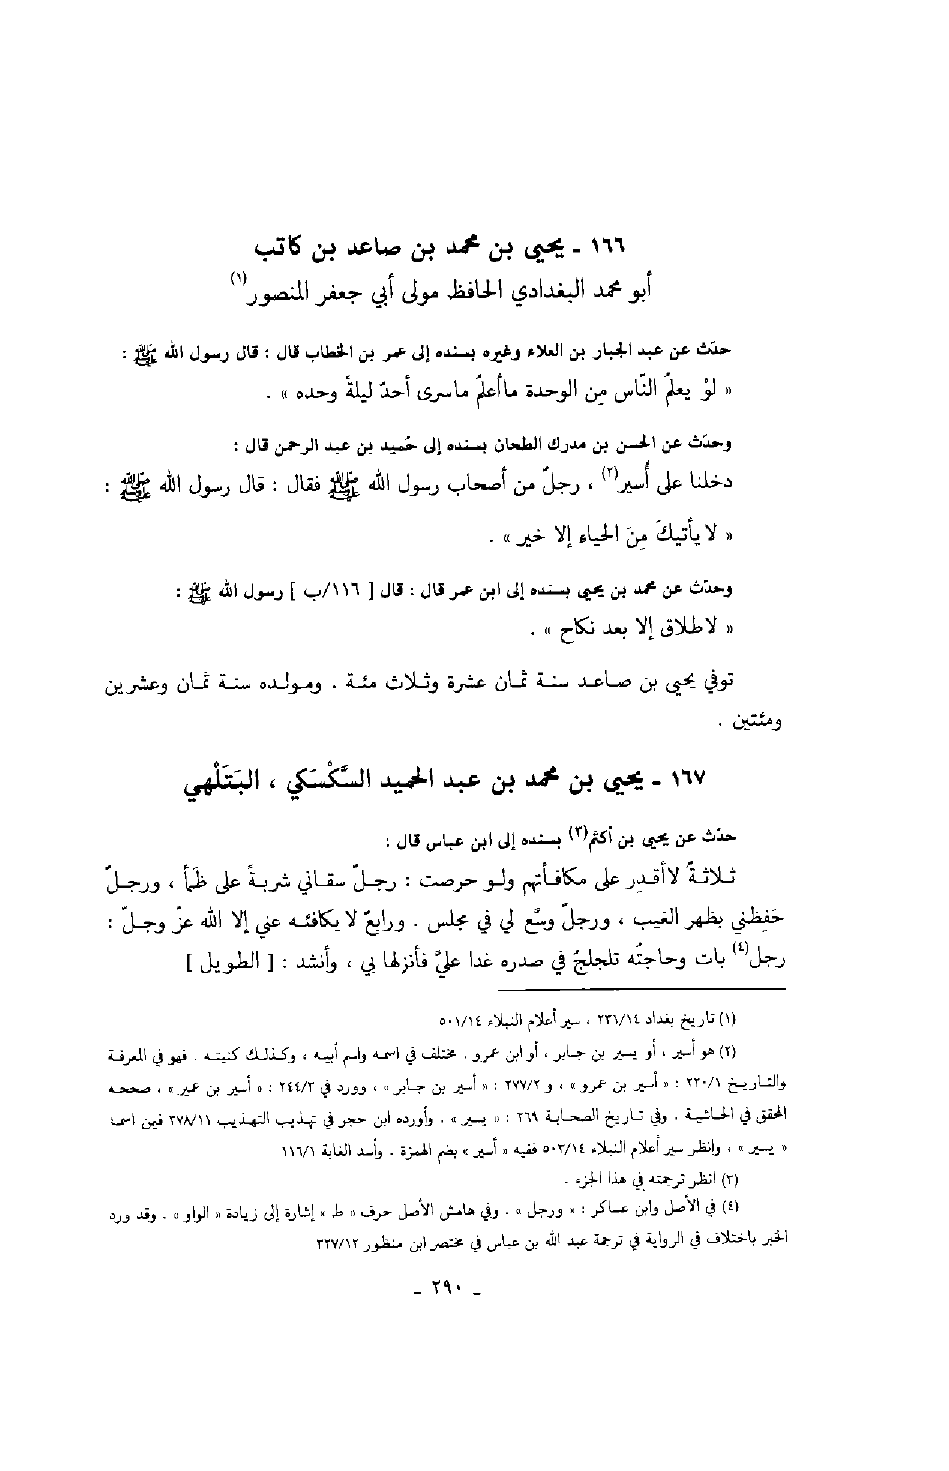 ١٦٦ - يحيى بن محمد بن صاعد بن كاتب
أبو محمد البغدادي الحافظ مولى أبي جعفر المنصور(١)
حدّث عن عبد الجبار بن العلاء وغيره بسنده إلى عمر بن الخطاب قال : قال رسول الله ﷺ :
« لَوْ يعلمُ النّاس مِن الوحدة ماأعلمُ ماسرى أحدٌ ليلةً وحده » .
وحدّث عن الحسن بن مدرك الطحان بسنده إلى حُميد بن عبد الرحمن قال :
دخلنا على أُسير(٢) ، رجلٌ من أصحاب رسول الله ﷺ فقال : قال رسول الله ﷺ :
« لا يأتيكَ مِنَ الحياء إلا خير » .
وحدّث عن محمد بن يحيى بسنده إلى ابن عمر قال : قال [ ١١٦/ب ] رسول الله ﷺ :
« لاطلاق إلا بعد نكاح » .
توفي يحيى بن صاعد سنة ثمان عشرة وثلاث مئة . ومولده سنة ثمان وعشرين
ومئتين .
١٦٧ - يحيى بن محمد بن عبد الحميد السَّكْسَكي ، البَتَلْهي
حدّث عن يحيى بن أكثم(٣) بسنده إلى ابن عباس قال :
ثلاثةٌ لاأقدِر على مكافأتهم ولو حرصت : رجلٌ سقاني شربةً على ظَمَأ ، ورجلٌ
حَفِظني بظهر الغيب ، ورجلٌ وسَّع لي في مجلس . ورابعٌ لا يكافئه عني إلا الله عزّ وجلّ :
رجل(٤) بات وحاجتُه تلجلجُ في صدره غدا عليَّ فأنزلها بي ، وأنشد : [ الطويل ]
(١) تاريخ بغداد ٢٣١/١٤ ، سير أعلام النبلاء ٥٠١/١٤
(٢) هو أسير ، أو يسير بن جابر ، أو ابن عمرو . مختلف في اسمه واسم أبيه ، وكذلك كنيته . فهو في المعرفة
والتاريخ ٢٢٠/١ : « أسير بن عمرو » ، و ٢٧٧/٢ : « أسير بن جابر » ، وورد في ٢٤٤/٢ : « أسير بن عمير » ، صححه
المحقق في الحاشية . وفي تاريخ الصحابة ٢٦٩ : « يسير » . وأورده ابن حجر في تهذيب التهذيب ٣٧٨/١١ فين اسمه
« يسير » ، وانظر سير أعلام النبلاء ٥٠٣/١٤ ففيه « أسير » بضم الهمزة . وأسد الغابة ١١٦/١
(٣) انظر ترجمته في هذا الجزء .
(٤) في الأصل وابن عساكر : « ورجل » . وفي هامش الأصل حرف « ط » إشارة إلى زيادة « الواو » . وقد ورد
الخبر باختلاف في الرواية في ترجمة عبد الله بن عباس في مختصر ابن منظور ٣٢٧/١٢
- ٢٩٠ -